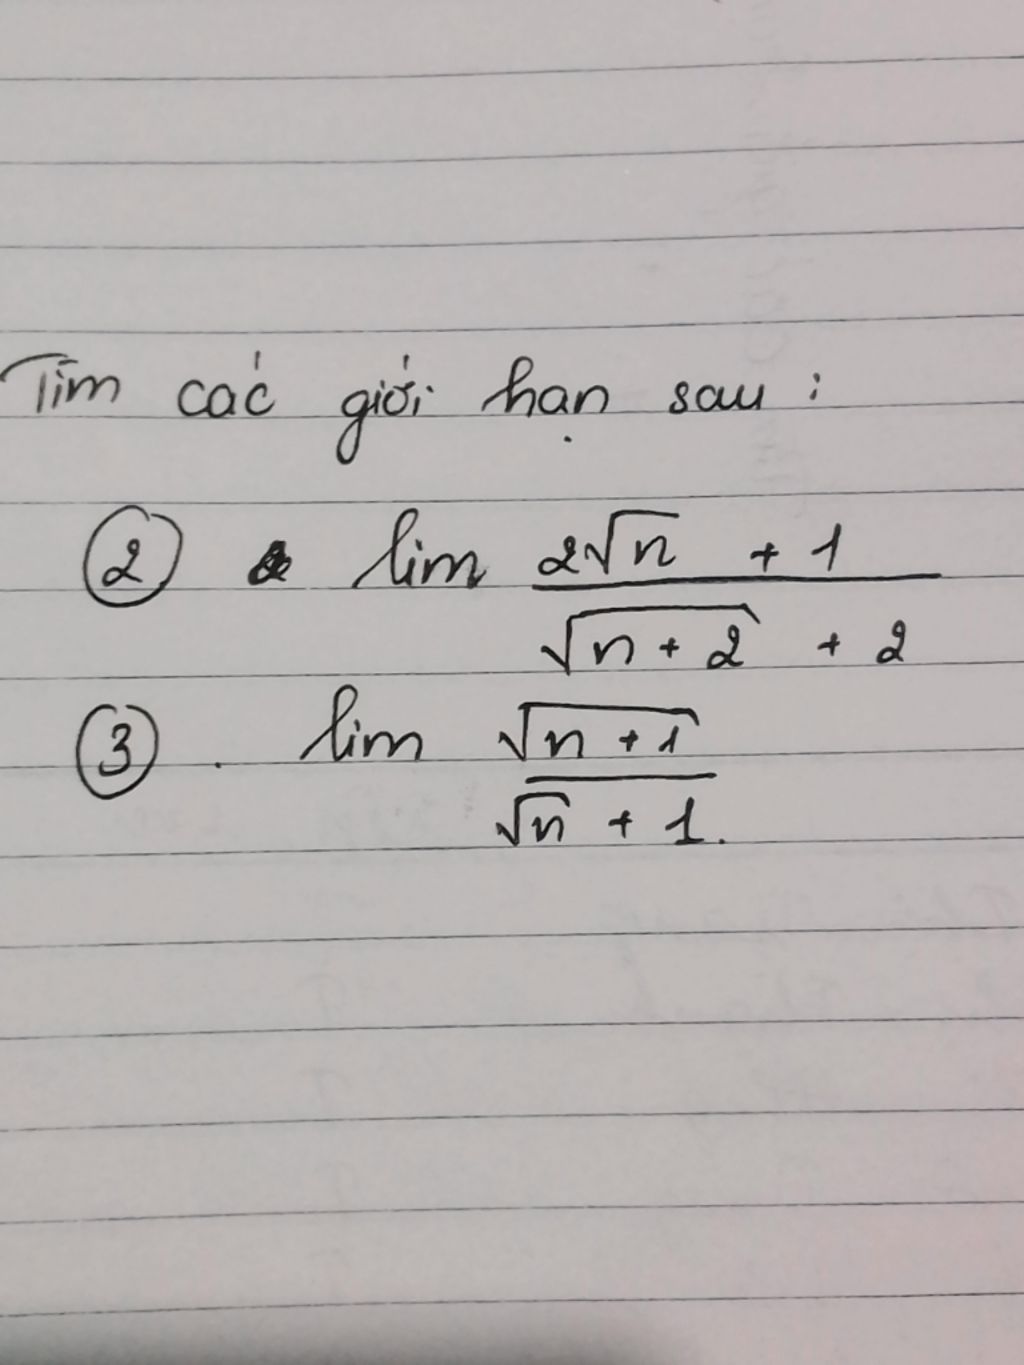 Tìm các giới hạn sau :
② lim (2√n + 1)/(√(n + 2) + 2)
③ . lim √(n + 1)/(√n + 1).